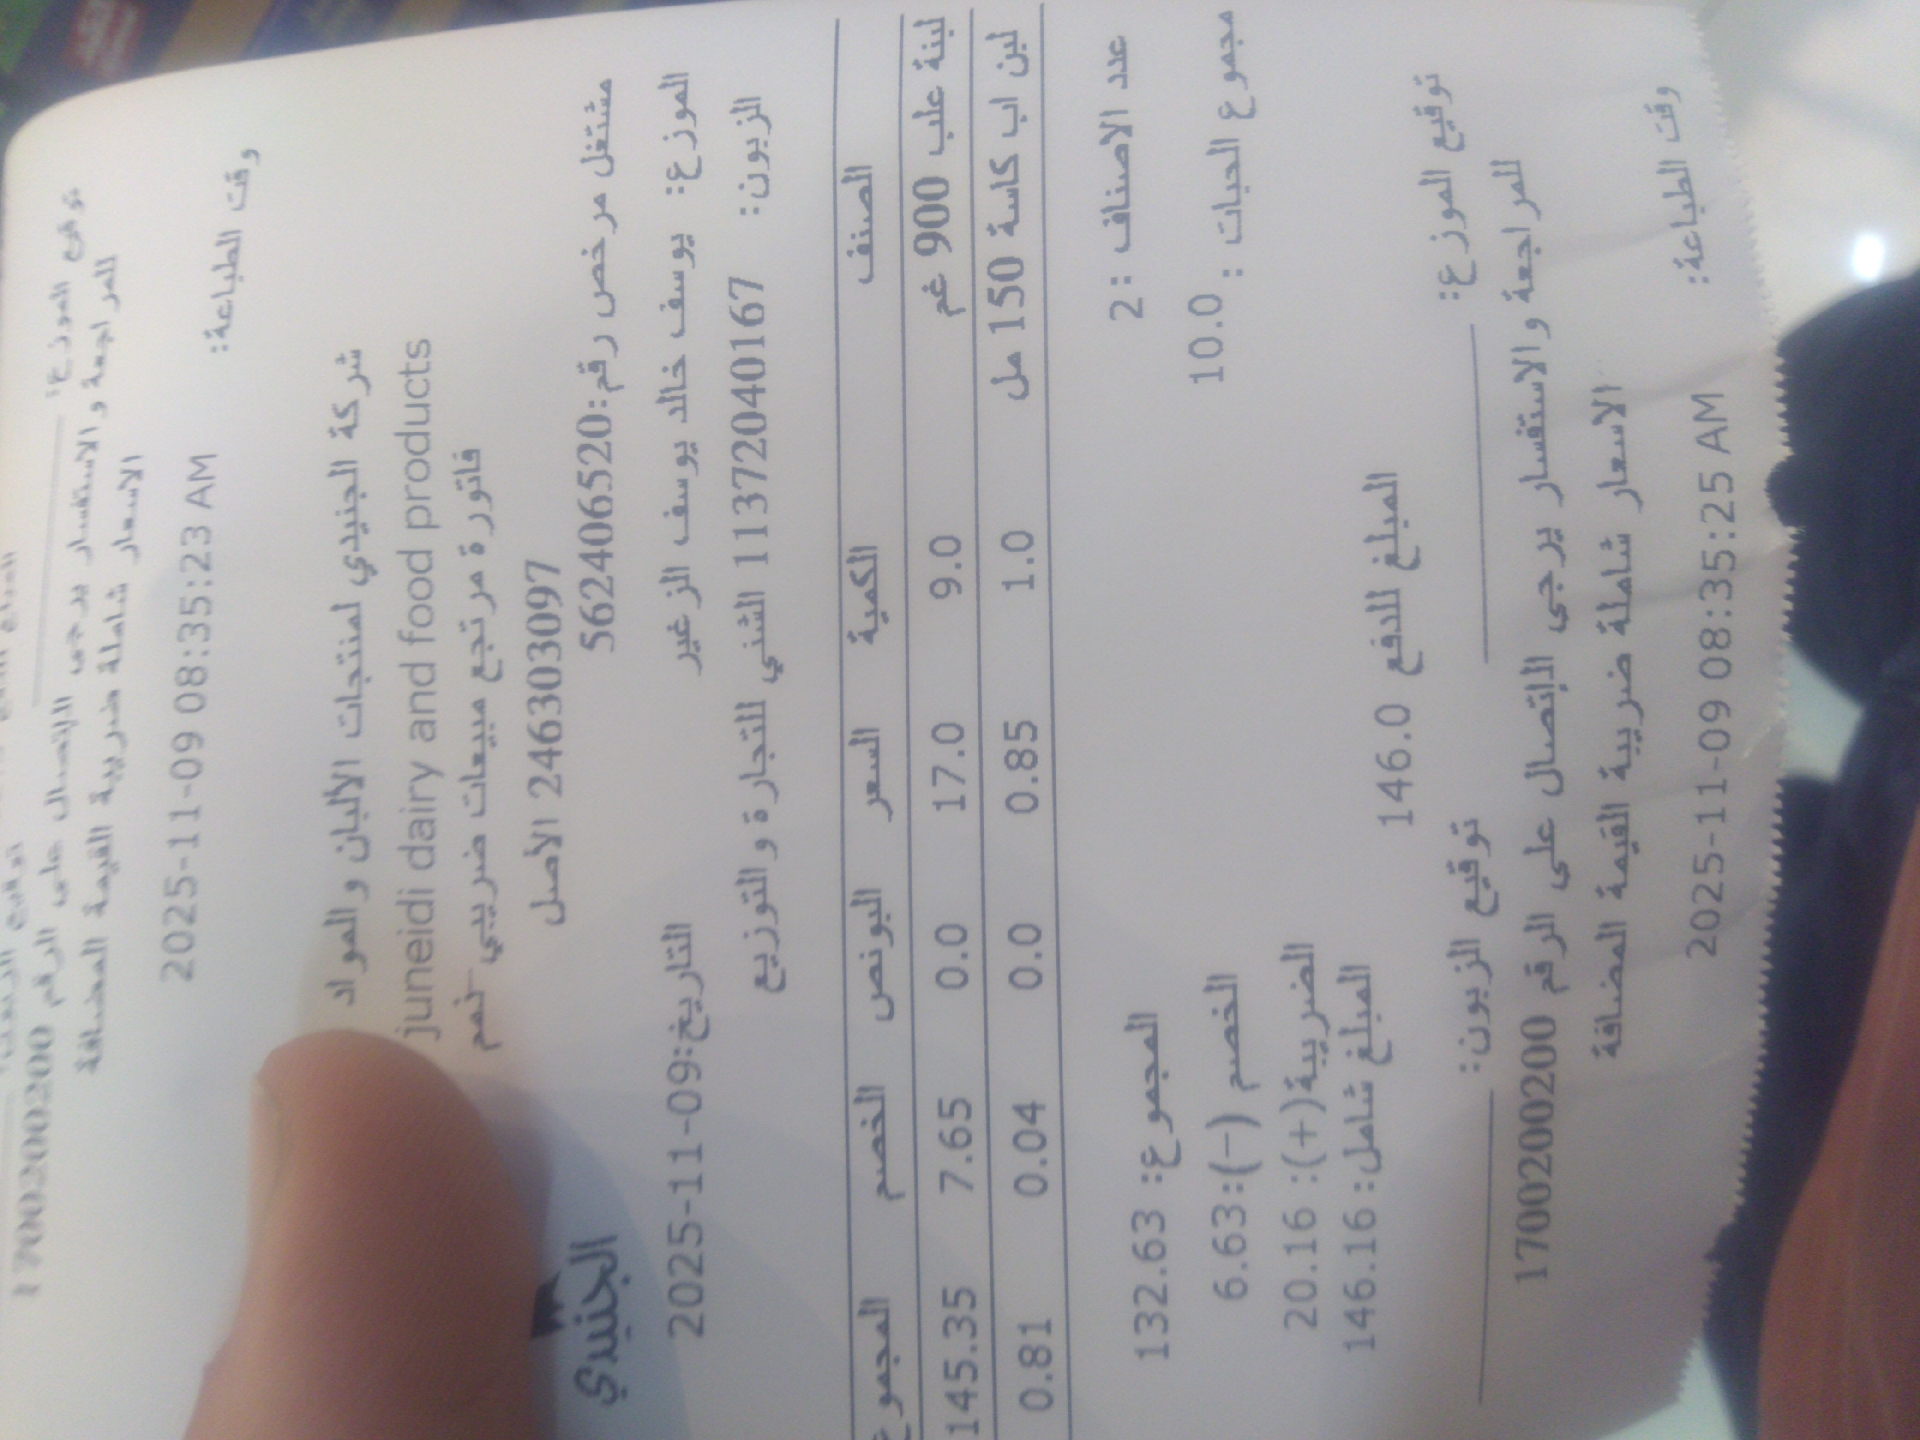 توقيع الموزع:
للمراجعة والاستفسار يرجى الإتصال على الرقم 1700200200
الاسعار شاملة ضريبة القيمة المضافة
وقت الطباعة: 2025-11-09 08:35:23 AM
شركة الجنيدي لمنتجات الألبان والمواد
juneidi dairy and food products
فاتورة مرتجع مبيعات ضريبي
246303097 الأصل
مشتغل مرخص رقم:562406520
الجنيدي
الموزع: يوسف خالد يوسف الزغير
التاريخ:2025-11-09
الزبون: 1137204167 الشني للتجارة والتوزيع
الصنف الكمية السعر البونص الخصم المجموع
لبنة علب 900 غم 9.0 17.0 0.0 7.65 145.35
لبن اب كاسة 150 مل 1.0 0.85 0.0 0.04 0.81
عدد الاصناف :2 المجموع: 132.63
مجموع الحبات : 10.0 الخصم (-):6.63
الضريبة(+): 20.16
المبلغ للدفع 146.0 المبلغ شامل: 146.16
توقيع الموزع: توقيع الزبون:
للمراجعة والاستفسار يرجى الإتصال على الرقم 1700200200
الاسعار شاملة ضريبة القيمة المضافة
وقت الطباعة: 2025-11-09 08:35:25 AM